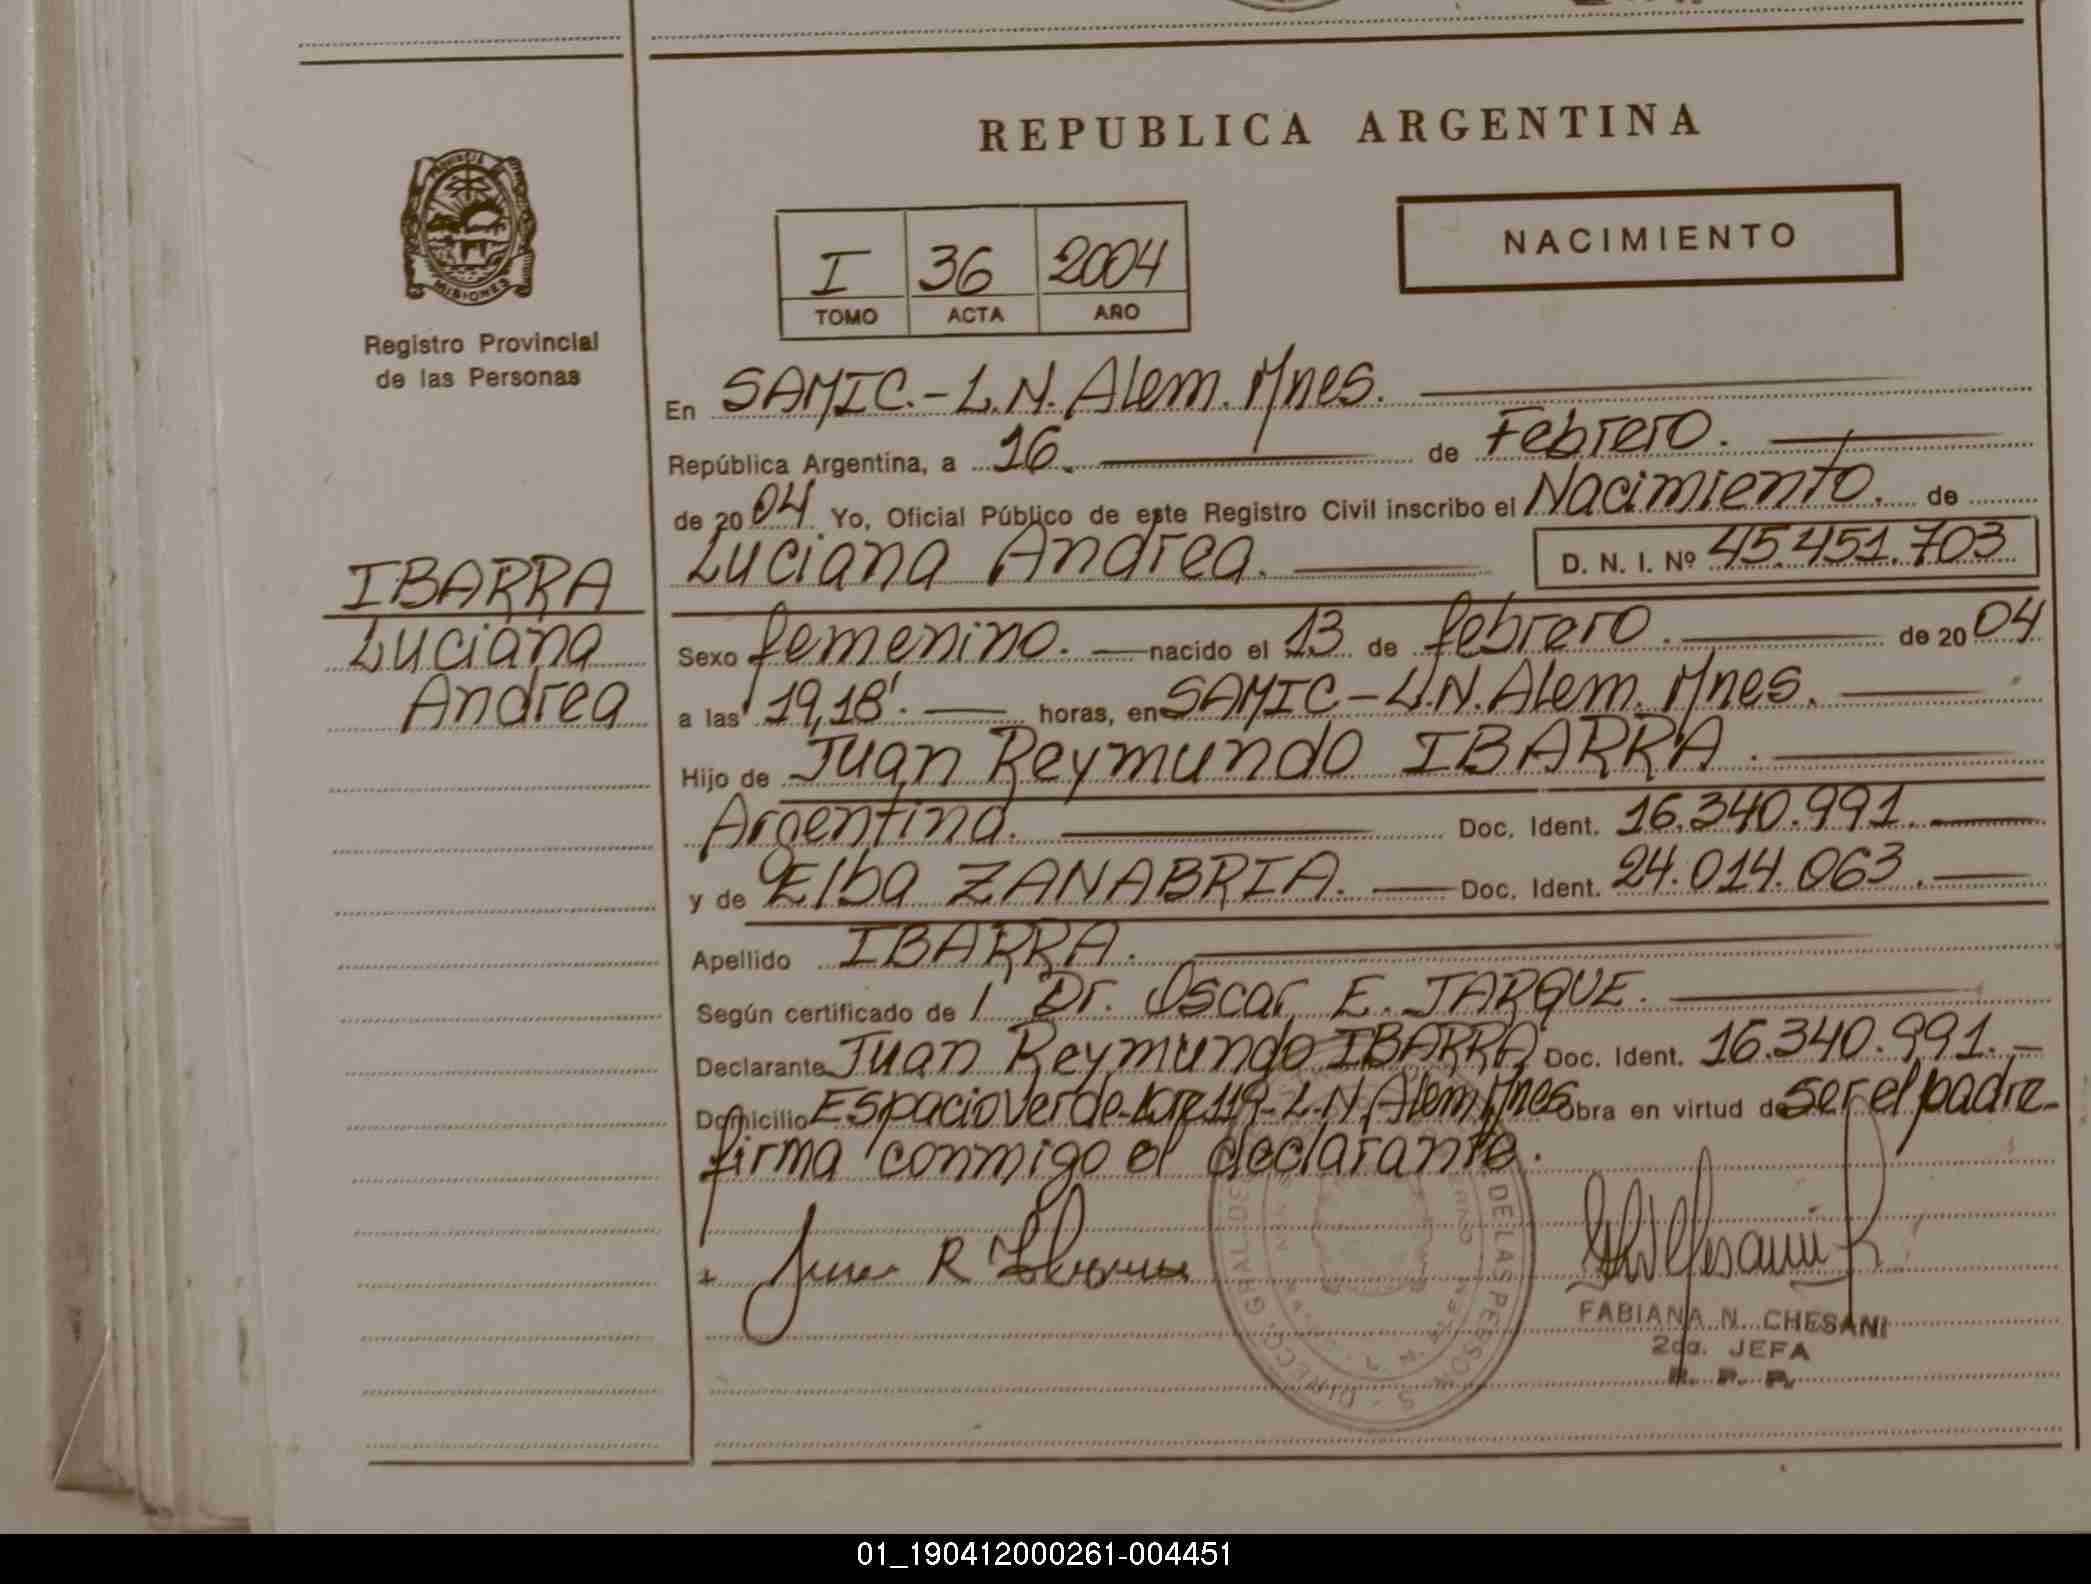 REPUBLICA ARGENTINA
PROVINCIA
MISIONES
Registro Provincial
de las Personas
NACIMIENTO
I 36 2004
TOMO ACTA AÑO
En SAMIC.- L.N. Alem. Mnes.
República Argentina, a 16. de Febrero.
de 2004 Yo, Oficial Público de este Registro Civil inscribo el Nacimiento. de
Luciana Andrea. D. N. I. Nº 45.451.703
IBARRA
Luciana
Andrea
Sexo femenino. nacido el 13 de febrero. de 2004
a las 19,18'. horas, en SAMIC - L.N. Alem. Mnes.
Hijo de Juan Reymundo IBARRA.
Argentina. Doc. Ident. 16.340.991.
y de Elba ZANABRIA. Doc. Ident. 24.014.063.
Apellido IBARRA.
Según certificado de / Dr. Oscar E. JARQUE.
Declarante Juan Reymundo IBARRA Doc. Ident. 16.340.991.-
Domicilio Espacio Verde-Lote 119-L.N. Alem, Mnes Obra en virtud de ser el padre-
firma conmigo el declarante.
Juan R Ibarra
FABIANA N. CHESANI
2da. JEFA
R. P. P.
01_190412000261-004451